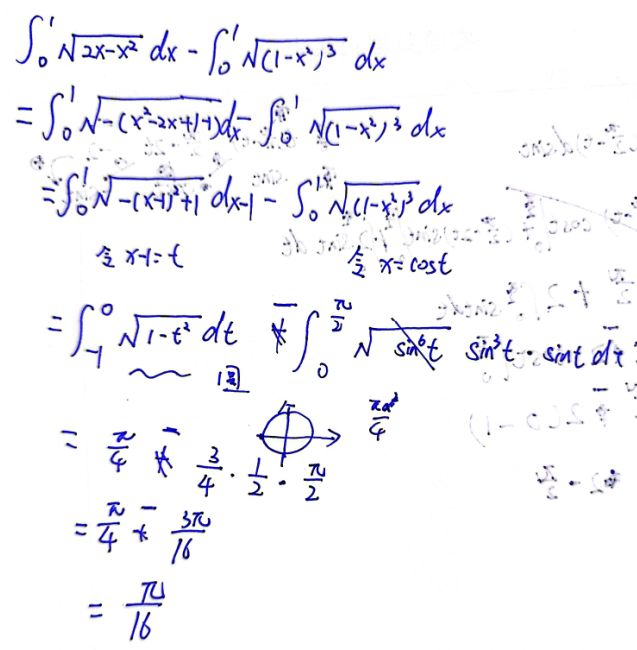 ∫₀¹ √(2x-x²) dx - ∫₀¹ √((1-x²)³) dx
= ∫₀¹ √(-(x²-2x+1-1)) dx - ∫₀¹ √((1-x²)³) dx
= ∫₀¹ √(-(x-1)²+1) dx-1 - ∫₀¹ √((1-x²)³) dx
令 x-1=t 令 x=cost
= ∫₋₁⁰ √(1-t²) dt - ∫₀^(π/2) sin³t · sint dt
圆
= π/4 - 3/4 · 1/2 · π/2
πa²/4
= π/4 - 3π/16
= π/16